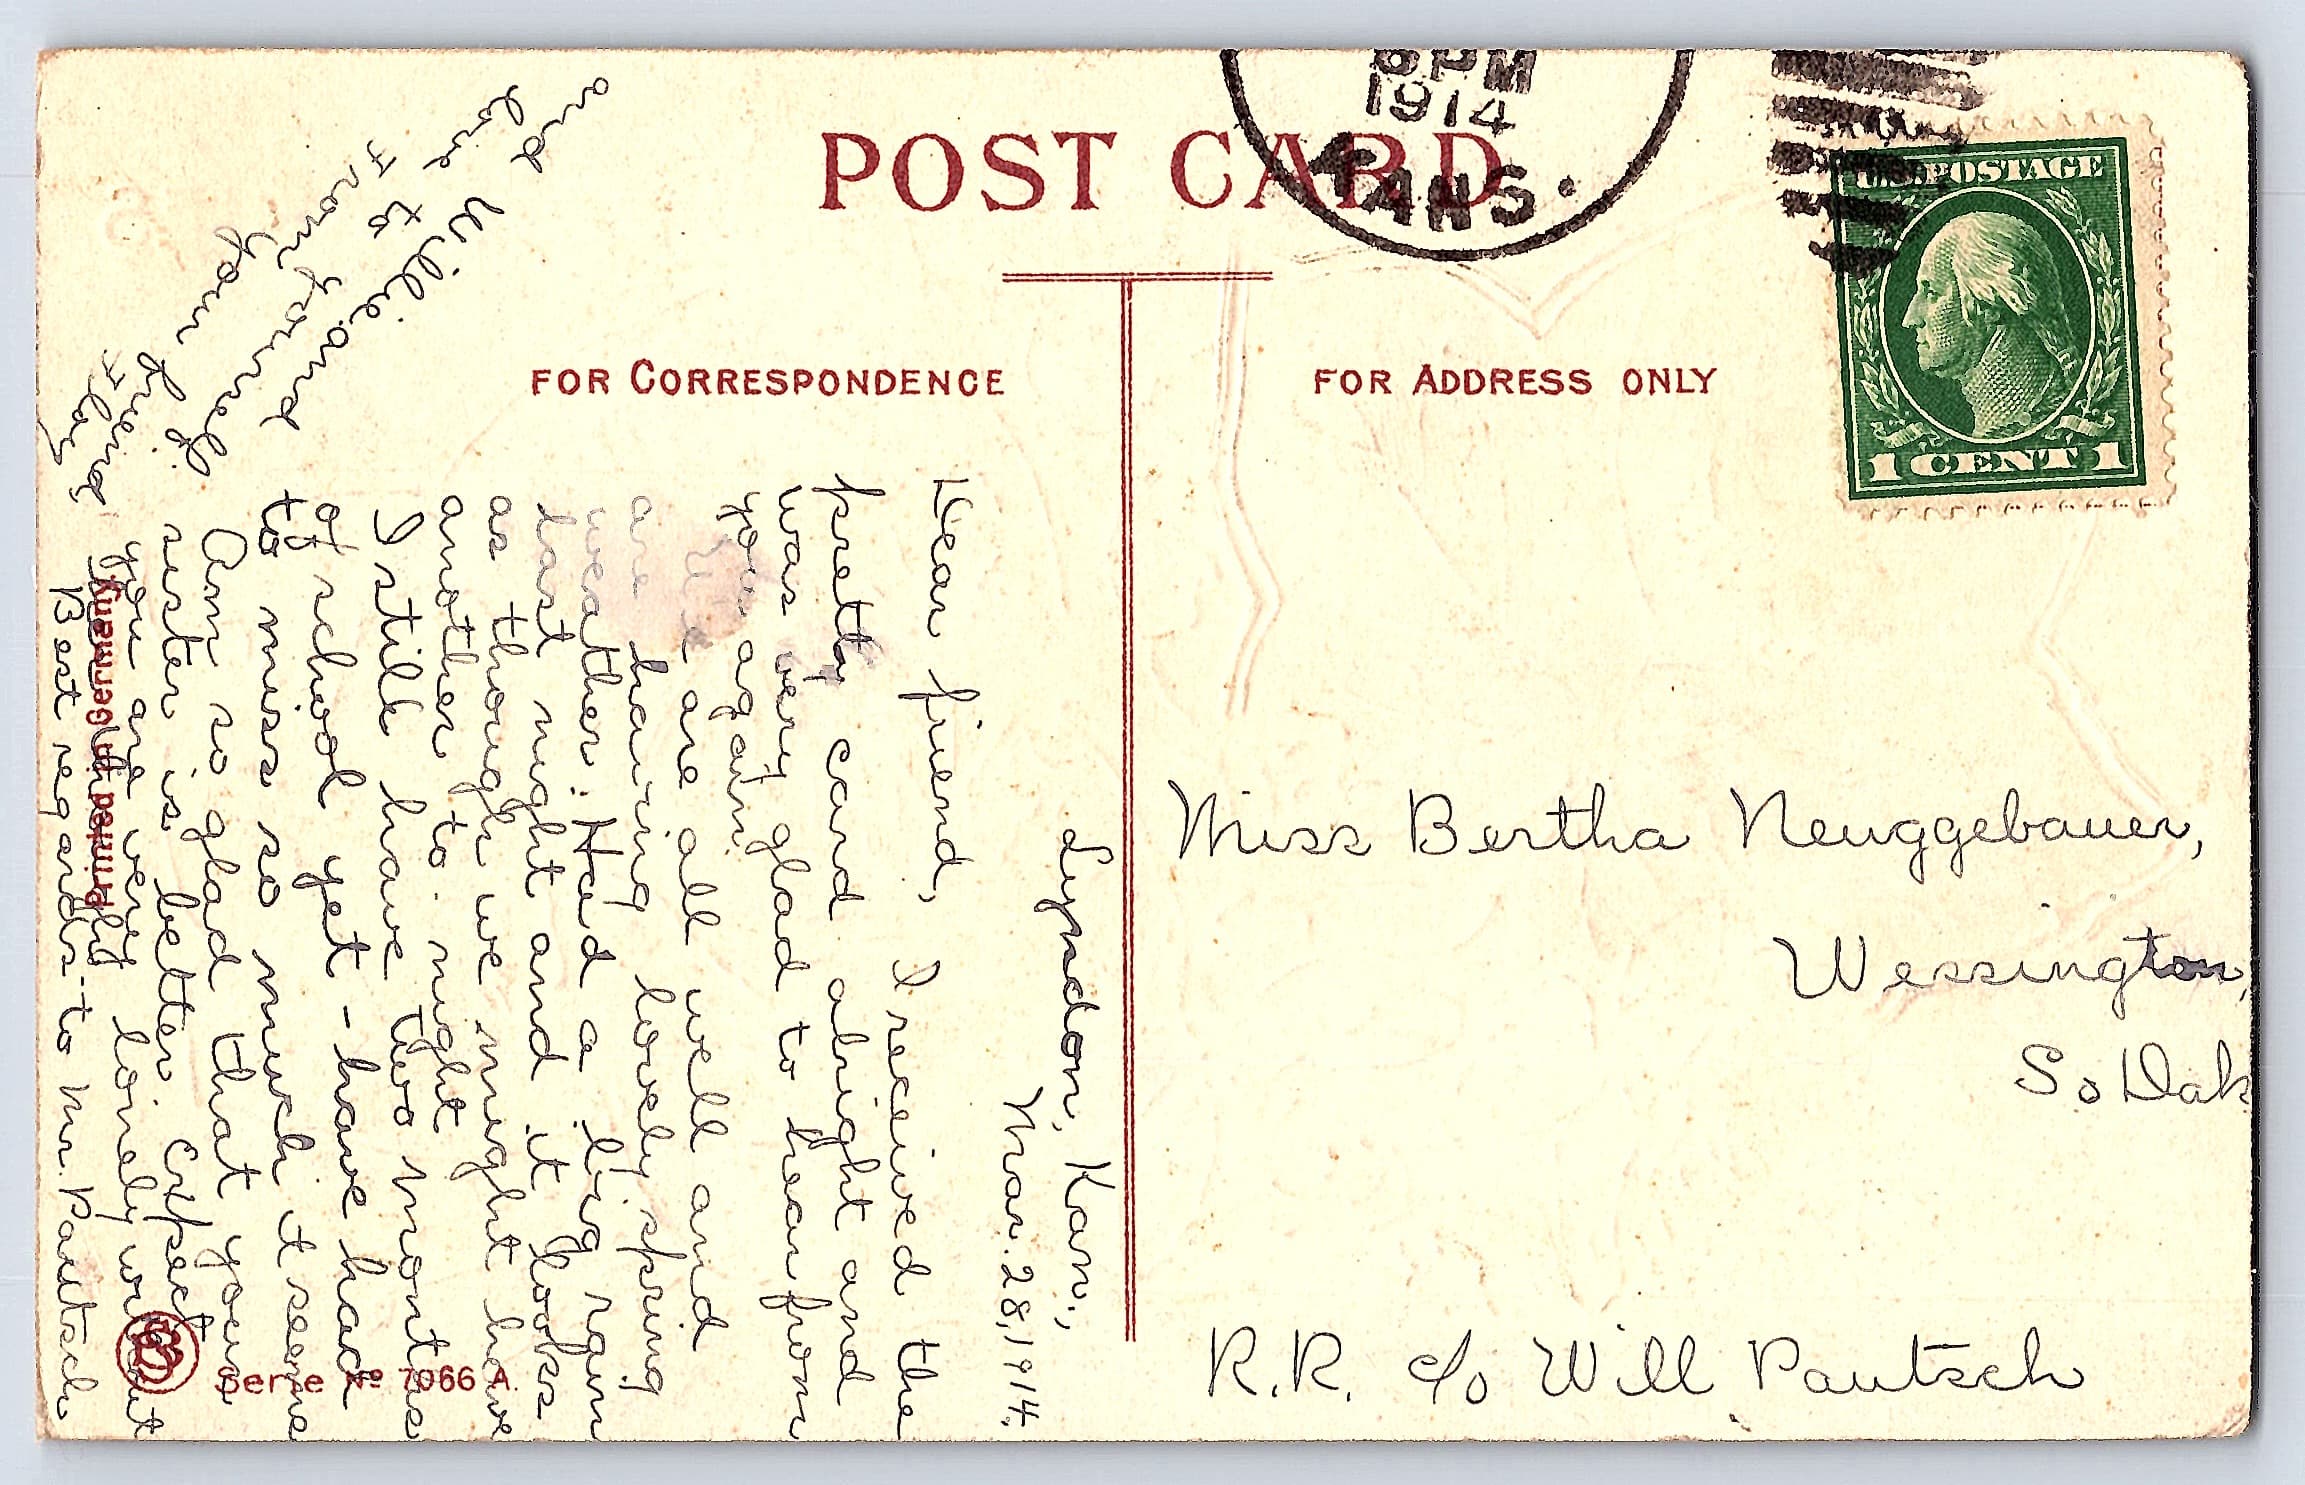 POST CARD
FOR CORRESPONDENCE
FOR ADDRESS ONLY
6 PM
1914
KANS.
U.S. POSTAGE
1 CENT 1
Lyndon, Kan.,
Mar. 28, 1914.
Dear friend, I received the
pretty card alright and
was very glad to hear from
you again.
We are all well and
are having lovely spring
weather. Had a big rain
last night and it looks
as though we might have
another to night
I still have two months
of school yet - have had
to miss so much it seems
Am so glad that your
sister is better. Expect
you are very lonely without
Best regards to Mr. Pautsch
and Willie and
love to
From yourself
Your friend
Printed in Germany
Serie No 7066 A.
Miss Bertha Neuggebauer,
Wessington,
So Dak
R.R. c/o Will Pautsch